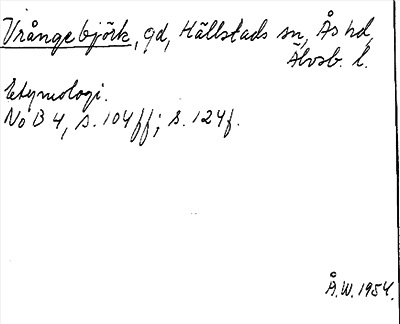 Vrångebjörk, gd, Hällstads sn, Ås hd,
Älvsb. l.
Etymologi.
NoB 4, s. 104 ff; s. 124 f.
Å.W. 1954.